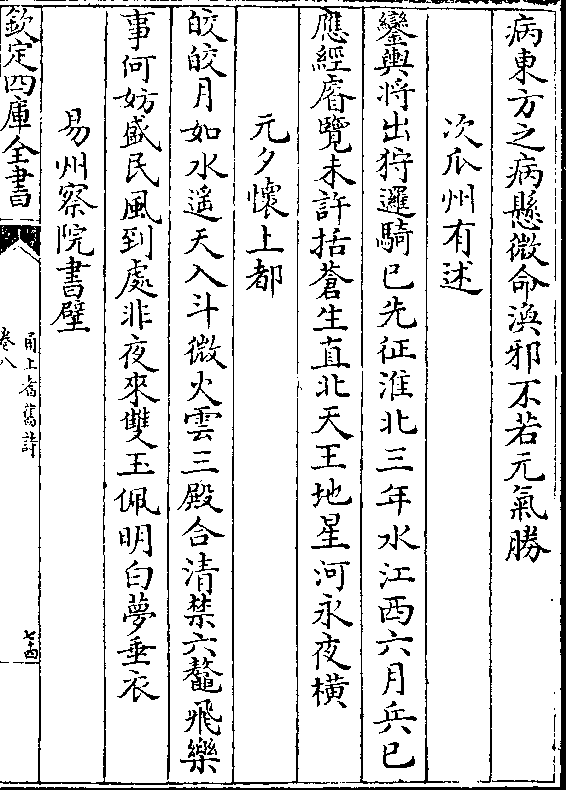 病東方之病懸微命渙邪不若元氣勝
次瓜州有述
鑾輿將出狩邏騎已先征淮北三年水江西六月兵已
應經睿覽未許括蒼生直北天王地星河永夜橫
元夕懷上都
皎皎月如水遙天入斗微火雲三殿合清禁六鼇飛樂
事何妨盛民風到處非夜來雙玉佩明白夢垂衣
易州察院書壁
欽定四庫全書
甬上耆舊詩
卷八
七四